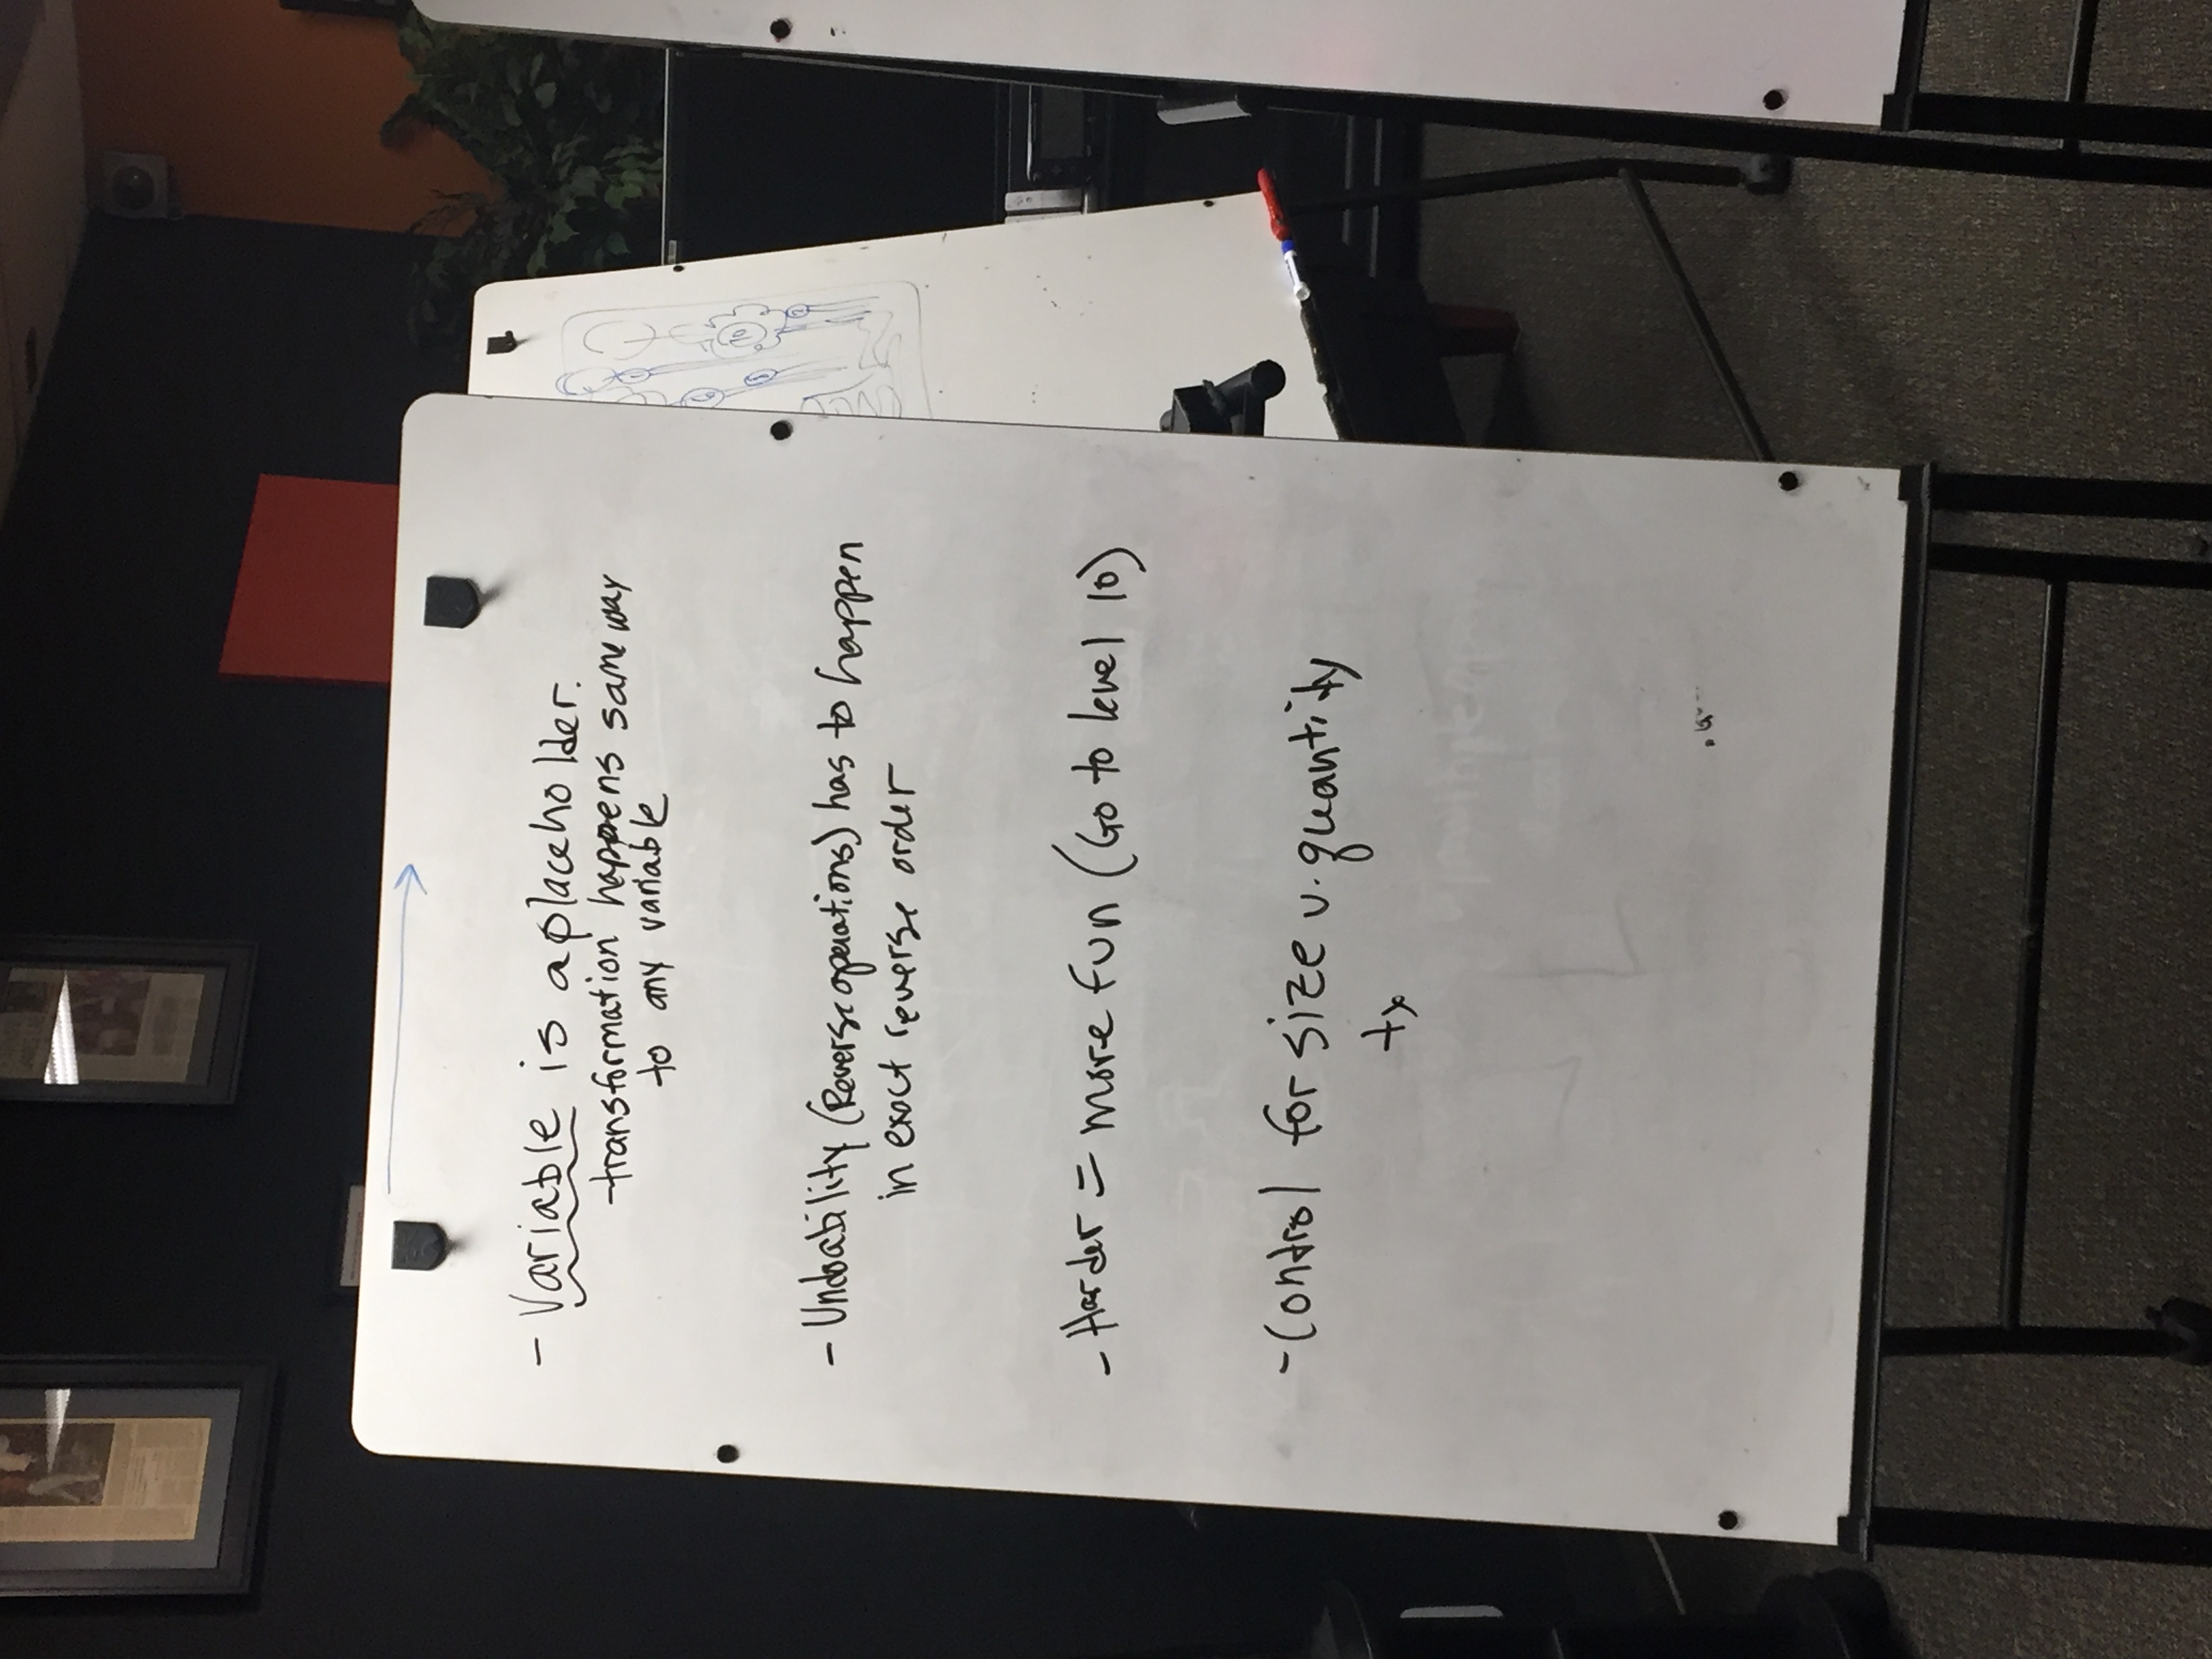 - Variable is a placeholder.
- transformation happens same way
to any variable
- Undoability (Reverse operations) has to happen
in exact reverse order
- Harder = more fun (Go to level 10)
- Control for size v. quantity